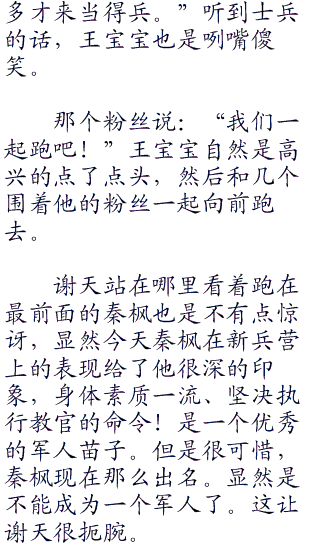 多才来当得兵。”听到士兵
的话，王宝宝也是咧嘴傻
笑。
那个粉丝说：“我们一
起跑吧！”王宝宝自然是高
兴的点了点头，然后和几个
围着他的粉丝一起向前跑
去。
谢天站在哪里看着跑在
最前面的秦枫也是不有点惊
讶，显然今天秦枫在新兵营
上的表现给了他很深的印
象，身体素质一流、坚决执
行教官的命令！是一个优秀
的军人苗子。但是很可惜，
秦枫现在那么出名。显然是
不能成为一个军人了。这让
谢天很扼腕。